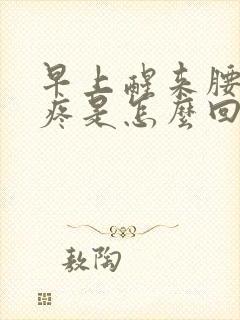 早上醒来腰
疼是怎麼回
敖陶